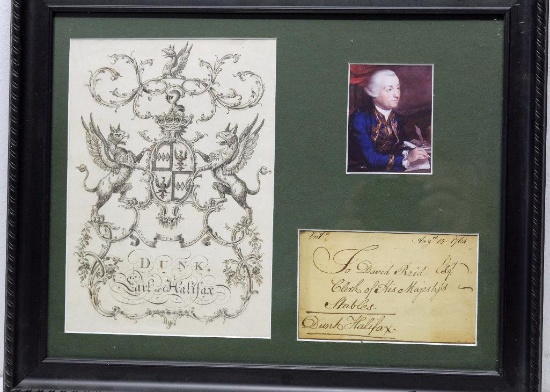 DUNK.
Earl of Halifax
Augst 13. 1764
To David Reid Esqr
Clerk of His Majesty's
Stables.
Dunk Halifax.